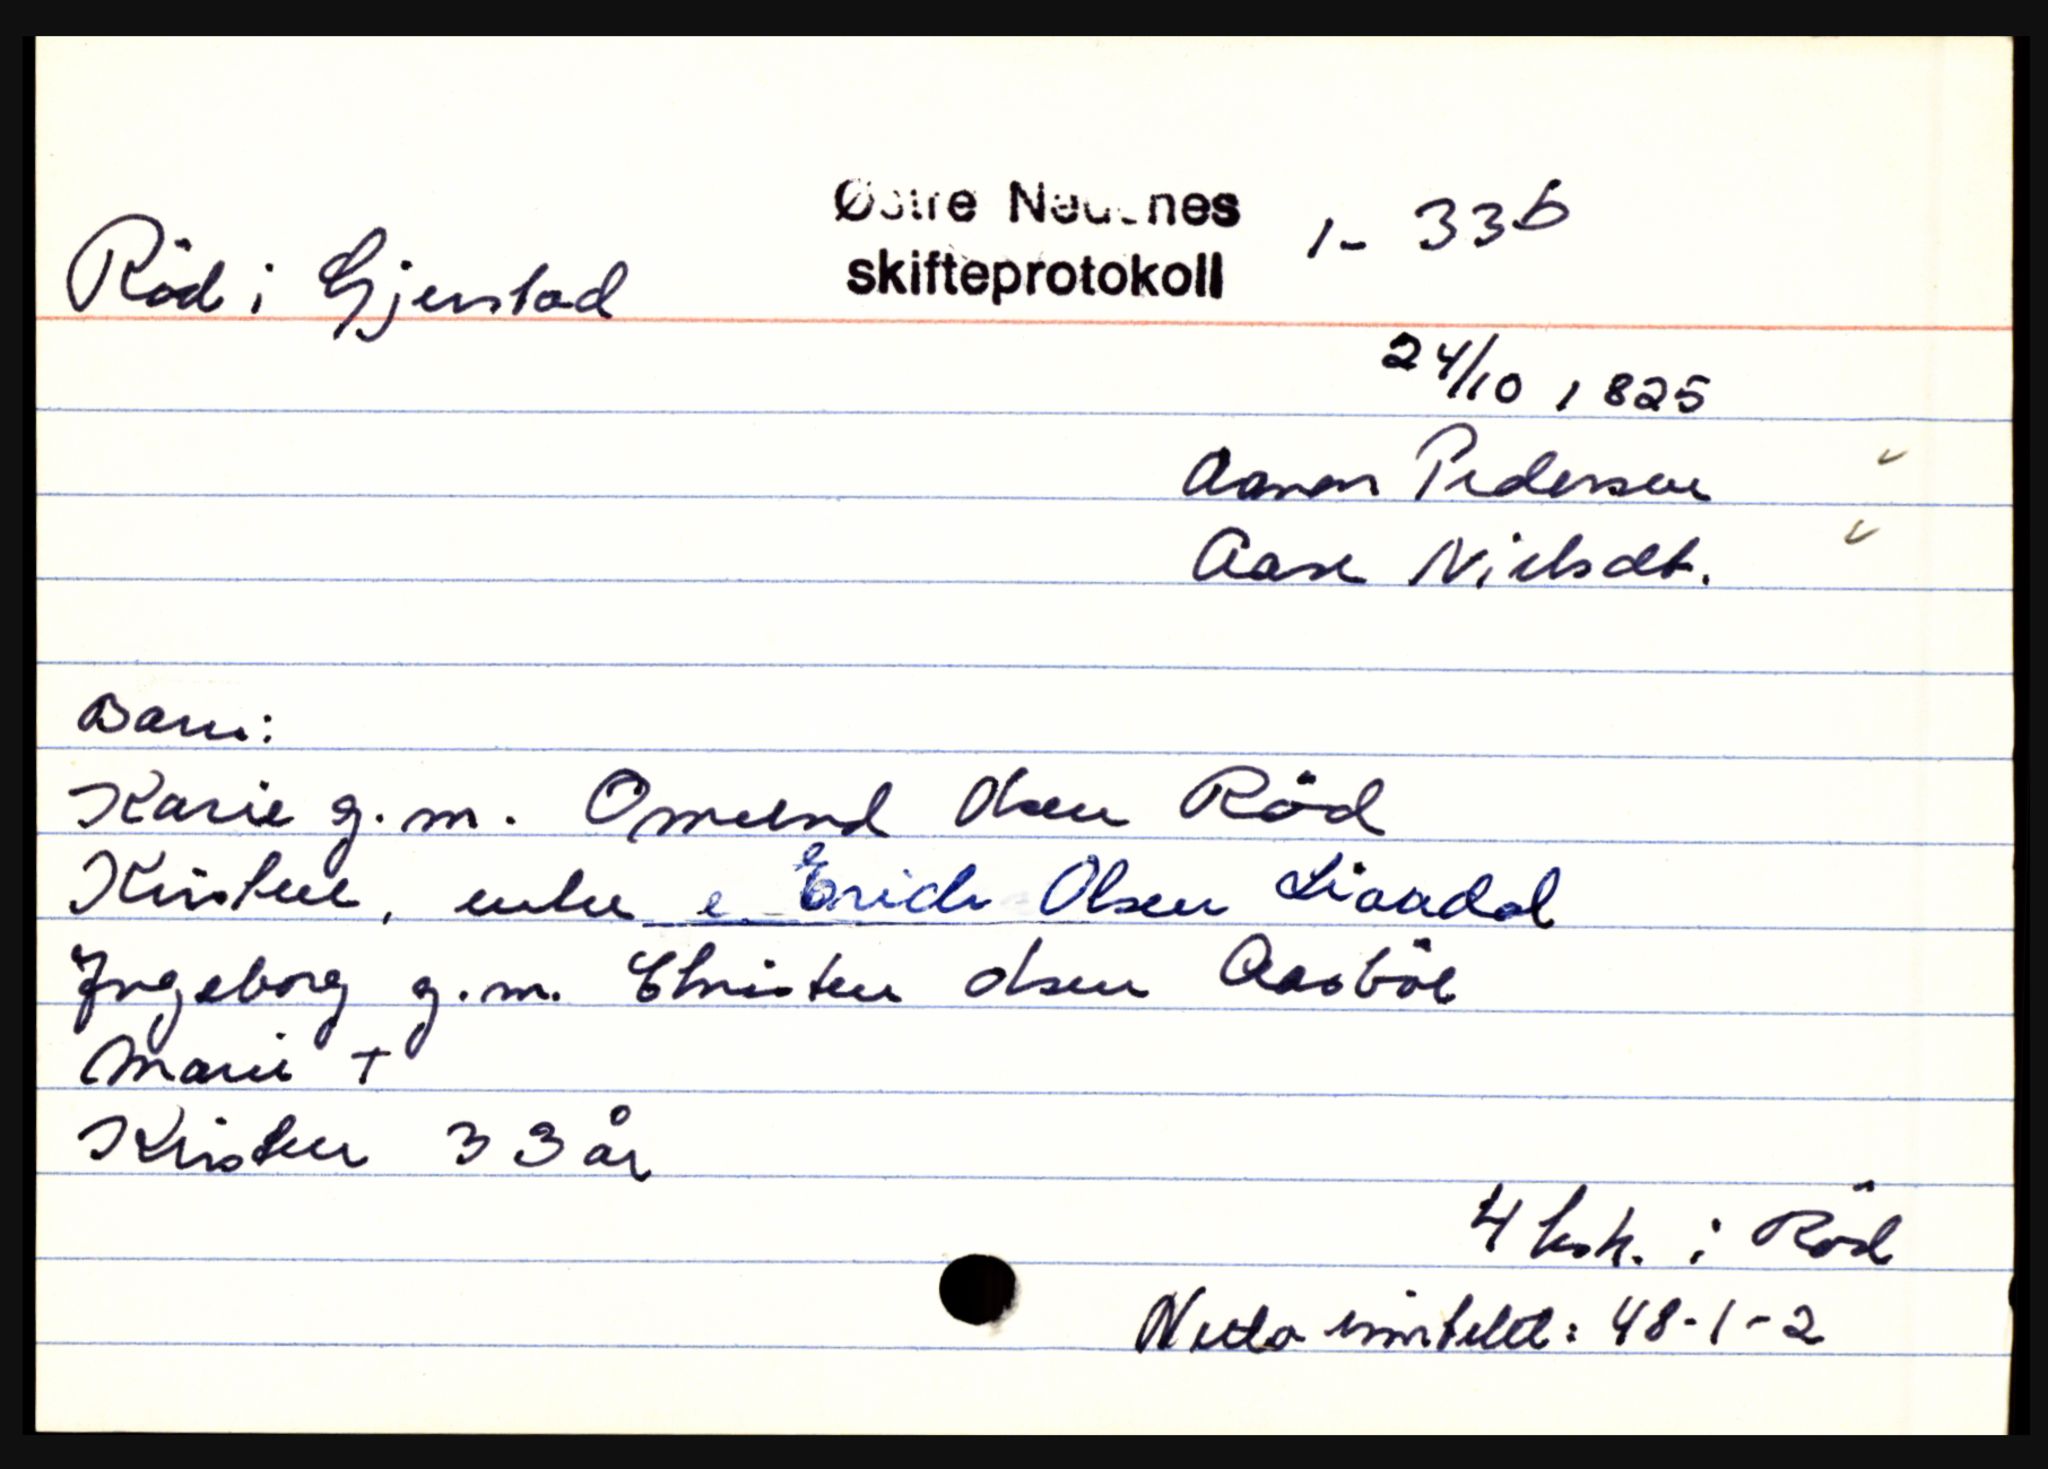 Østre Nedenes 1 - 33b
Röd i Gjerstad skifteprotokoll
24/10 1825
Aanon Pedersen
Aase Nielsdt.
Barn:
Karie g.m. Omund Olsen Röd
Kirstene, enke e Erich Olsen Liaadal
Ingeborg g.m. Christen Olsen Aasböe
Marie +
Kristen 33 år
4 hsk. i Röd
Netto innteld: 48-1-2